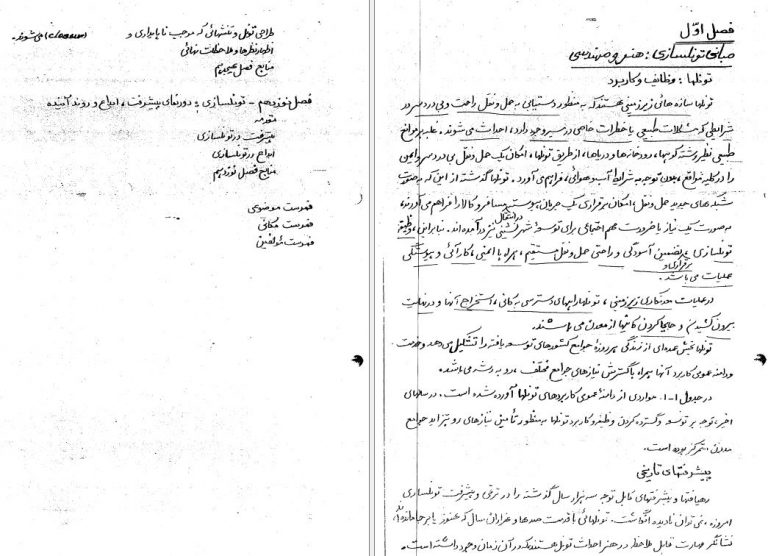 فصل اوّل
مبانی تونلسازی: هنر و مهندسی
تونلها: وظائف و کاربرد
تونلها سازه های زیرزمینی هستند که به منظور دستیابی به حمل و نقل راحت و بی دردسر در
شرایطی که مشکلات طبیعی یا خطرات خاصی در مسیر وجود دارد، احداث می شوند. غلبه بر موانع
طبیعی نظیر رشته کوهها، رودخانه ها و دریاها، از طریق تونلها، امکان یک حمل و نقل بی دردسر و ایمن
را در کلیه مواقع، بدون توجه به شرایط آب و هوائی، فراهم می آورد. تونلها گذشته از این که به صورت
شبکه های جدید حمل و نقل امکان برقراری یک جریان پیوسته مسافر و کالا را فراهم می آورند،
به صورت یک نیاز یا ضرورت مهم اجتماعی برای توسعهٔ شهرنشینی نیز در آمده اند. بنابراین، وظیفهٔ
تونلسازی تضمین آسودگی و راحتی حمل و نقل مستقیم، همراه با ایمنی، کارآئی و پیوستگی
عملیات می باشد.
در عملیات معدنکاری زیرزمینی، تونلها راههای دسترسی به کانی، استخراج آنها و در نهایت
بیرون کشیدن و جابجا کردن کانیها از معدن می باشند.
تونلها بخش عمده ای از زندگی هر روزهٔ جوامع کشورهای توسعه یافته را تشکیل می دهد و
دامنه عمومی کاربرد آنها همراه با گسترش نیازهای جوامع مختلف، رو به رشد می باشد.
در جدول ۱-۱. مواردی از دامنهٔ عمومی کاربردهای تونلها آورده شده است. در سالهای
اخیر، توجه بر توسعه و گسترده کردن وظیفه و کاربرد تونلها به منظور تأمین نیازهای رو بتزاید جوامع
مدرن، متمرکز بوده است.
پیشرفتهای تاریخی
رهیافتها و پیشرفتهای قابل توجه سه هزار سال گذشته را در ترقی و پیشرفت تونلسازی
امروزه، نمی توان نادیده انگاشت. تونلهائی با قدمت صدها و هزاران سال که هنوز پابرجا مانده اند
نشانگر مهارت قابل ملاحظه در هنر احداث تونل هستند که در آن زمان وجود داشته است.
طراحی تونل و تنشهائی که موجب ناپایداری و می شوند.
اظهار نظرها و ملاحظات نهائی
منابع فصل هیجدهم
فصل نوزدهم - تونلسازی به دورنمای پیشرفت، ابداع و روند آینده
مقدمه
پیشرفت در تونلسازی
ابداع در تونلسازی
منابع فصل نوزدهم
فهرست موضوعی
فهرست مکانی
فهرست مؤلفین